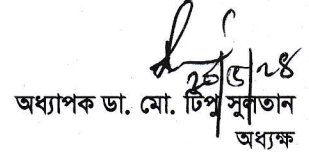 অধ্যাপক ডা. মো. টিপু সুলতান
অধ্যক্ষ